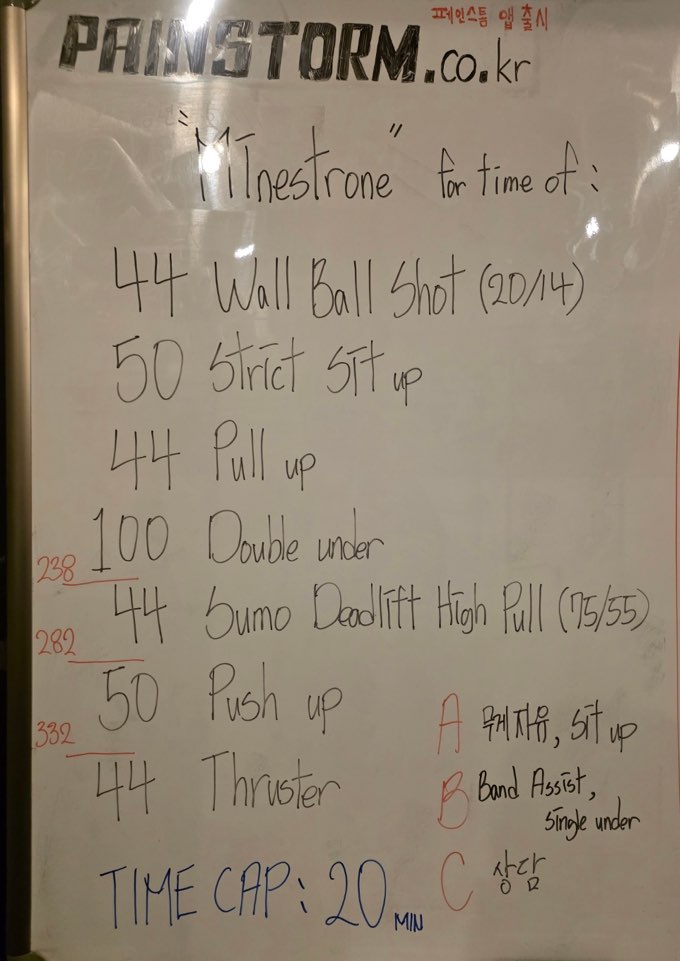 페인스톰 앱 출시
PAINSTORM.co.kr
"Minestrone" for time of:
44 Wall Ball Shot (20/14)
50 Strict Sit up
44 Pull up
100 Double under
238
44 Sumo Deadlift High Pull (75/55)
282
50 Push up
332
44 Thruster
A 무게자유, Sit up
B Band Assist,
single under
C 상담
TIME CAP: 20 MIN